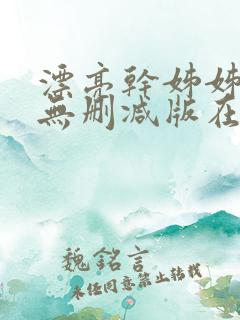 漂亮幹姊姊
無刪減版在
魏銘言
未經同意禁止轉載